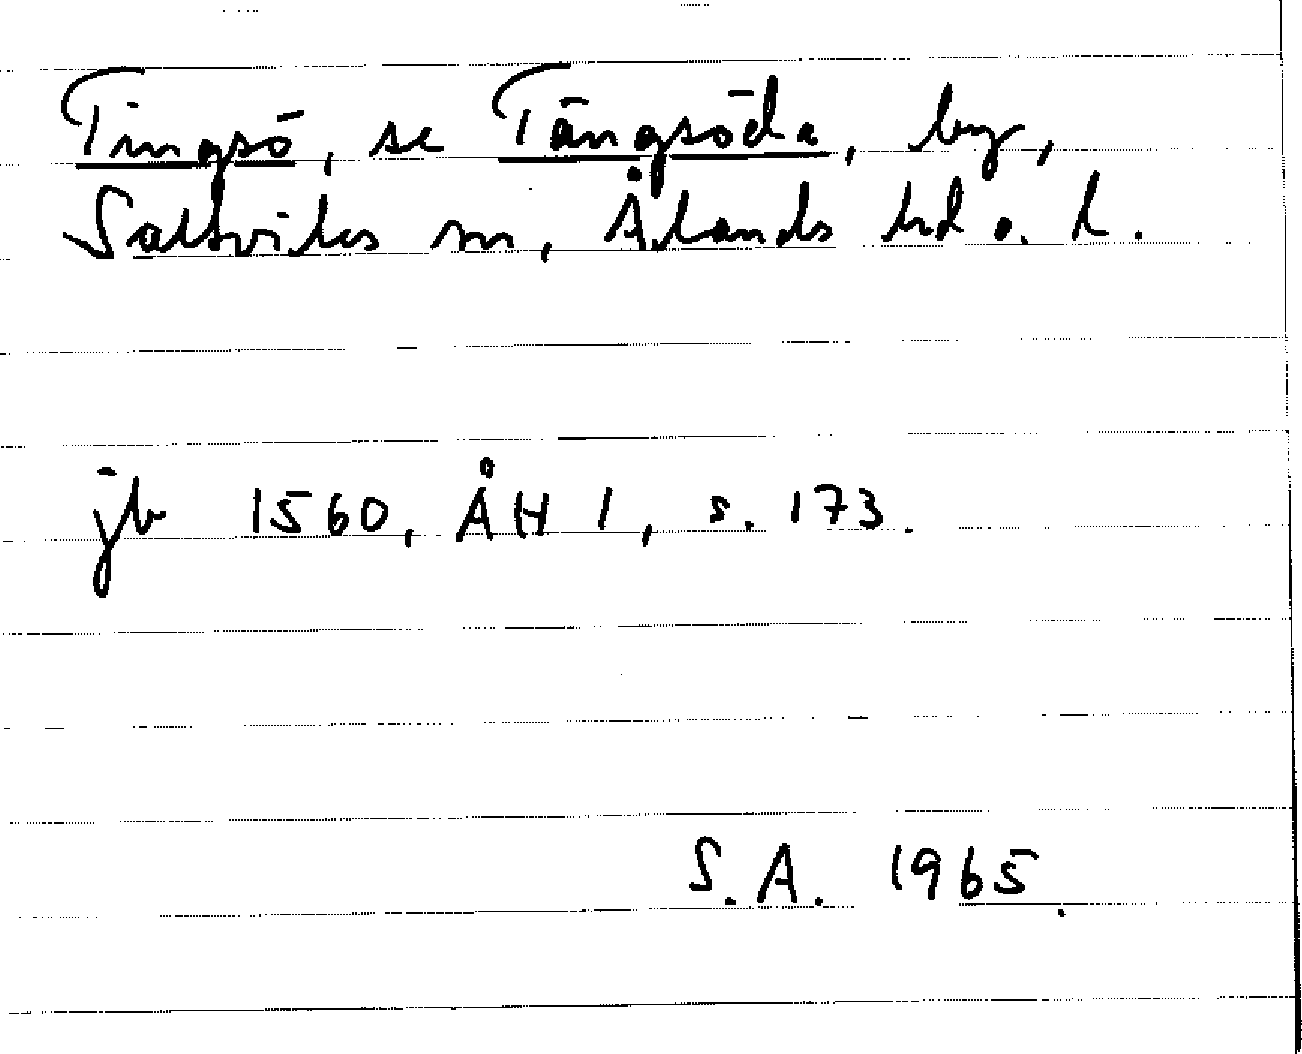 Tingsö, se Tängsöda, by,
Saltviks sn, Ålands hd o. l.
jb 1560, ÅH 1, s. 173.
S.A. 1965.